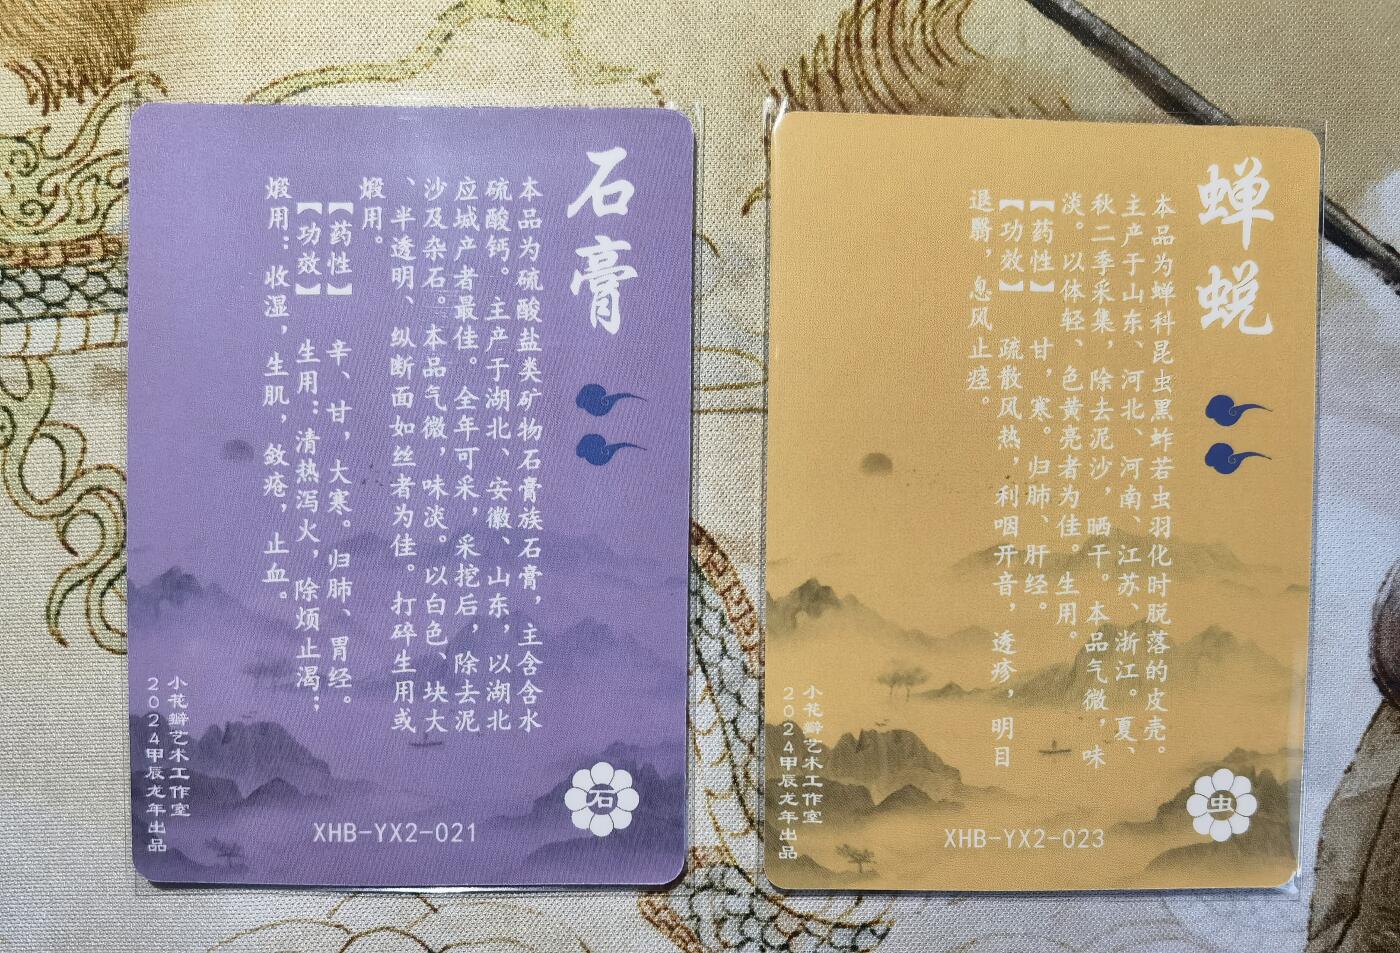 石膏
本品为硫酸盐类矿物石膏族石膏，主含含水
硫酸钙。主产于湖北、安徽、山东，以湖北
应城产者最佳。全年可采，采挖后，除去泥
沙及杂石。本品气微，味淡。以白色、块大
、半透明、纵断面如丝者为佳。打碎生用或
煅用。
【药性】 辛、甘，大寒。归肺、胃经。
【功效】 生用：清热泻火，除烦止渴；
煅用：收湿，生肌，敛疮，止血。
小花瓣艺术工作室
2024甲辰龙年出品
XHB-YX2-021
石
蝉蜕
本品为蝉科昆虫黑蚱若虫羽化时脱落的皮壳。
主产于山东、河北、河南、江苏、浙江。夏、
秋二季采集，除去泥沙，晒干。本品气微，味
淡。以体轻、色黄亮者为佳。生用。
【药性】 甘，寒。归肺、肝经。
【功效】 疏散风热，利咽开音，透疹，明目
退翳，息风止痉。
小花瓣艺术工作室
2024甲辰龙年出品
XHB-YX2-023
虫